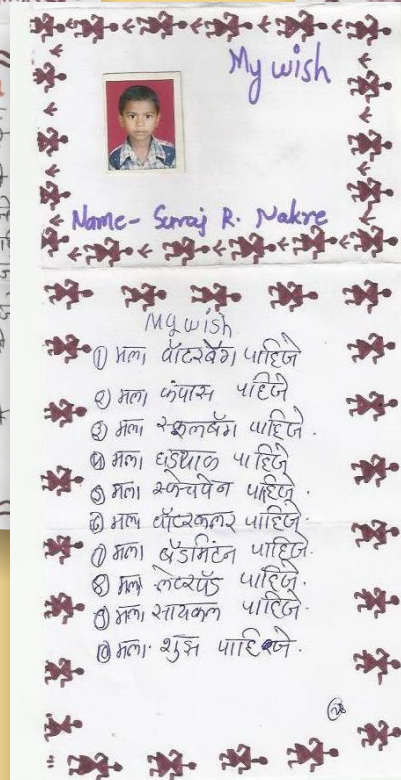 My wish
Name- Suraj R. Nakre
My wish
① मला वॉटरबॅग पाहिजे
२) मला कंपास पाहिजे
३) मला स्कूलबॅग पाहिजे.
४) मला घड्याळ पाहिजे
५) मला स्केचपेन पाहिजे.
६) मला वॉटरकलर पाहिजे.
७) मला बॅडमिंटन पाहिजे.
८) मला लेटरपॅड पाहिजे.
९) मला सायकल पाहिजे.
१०) मला शुझ पाहिजे.